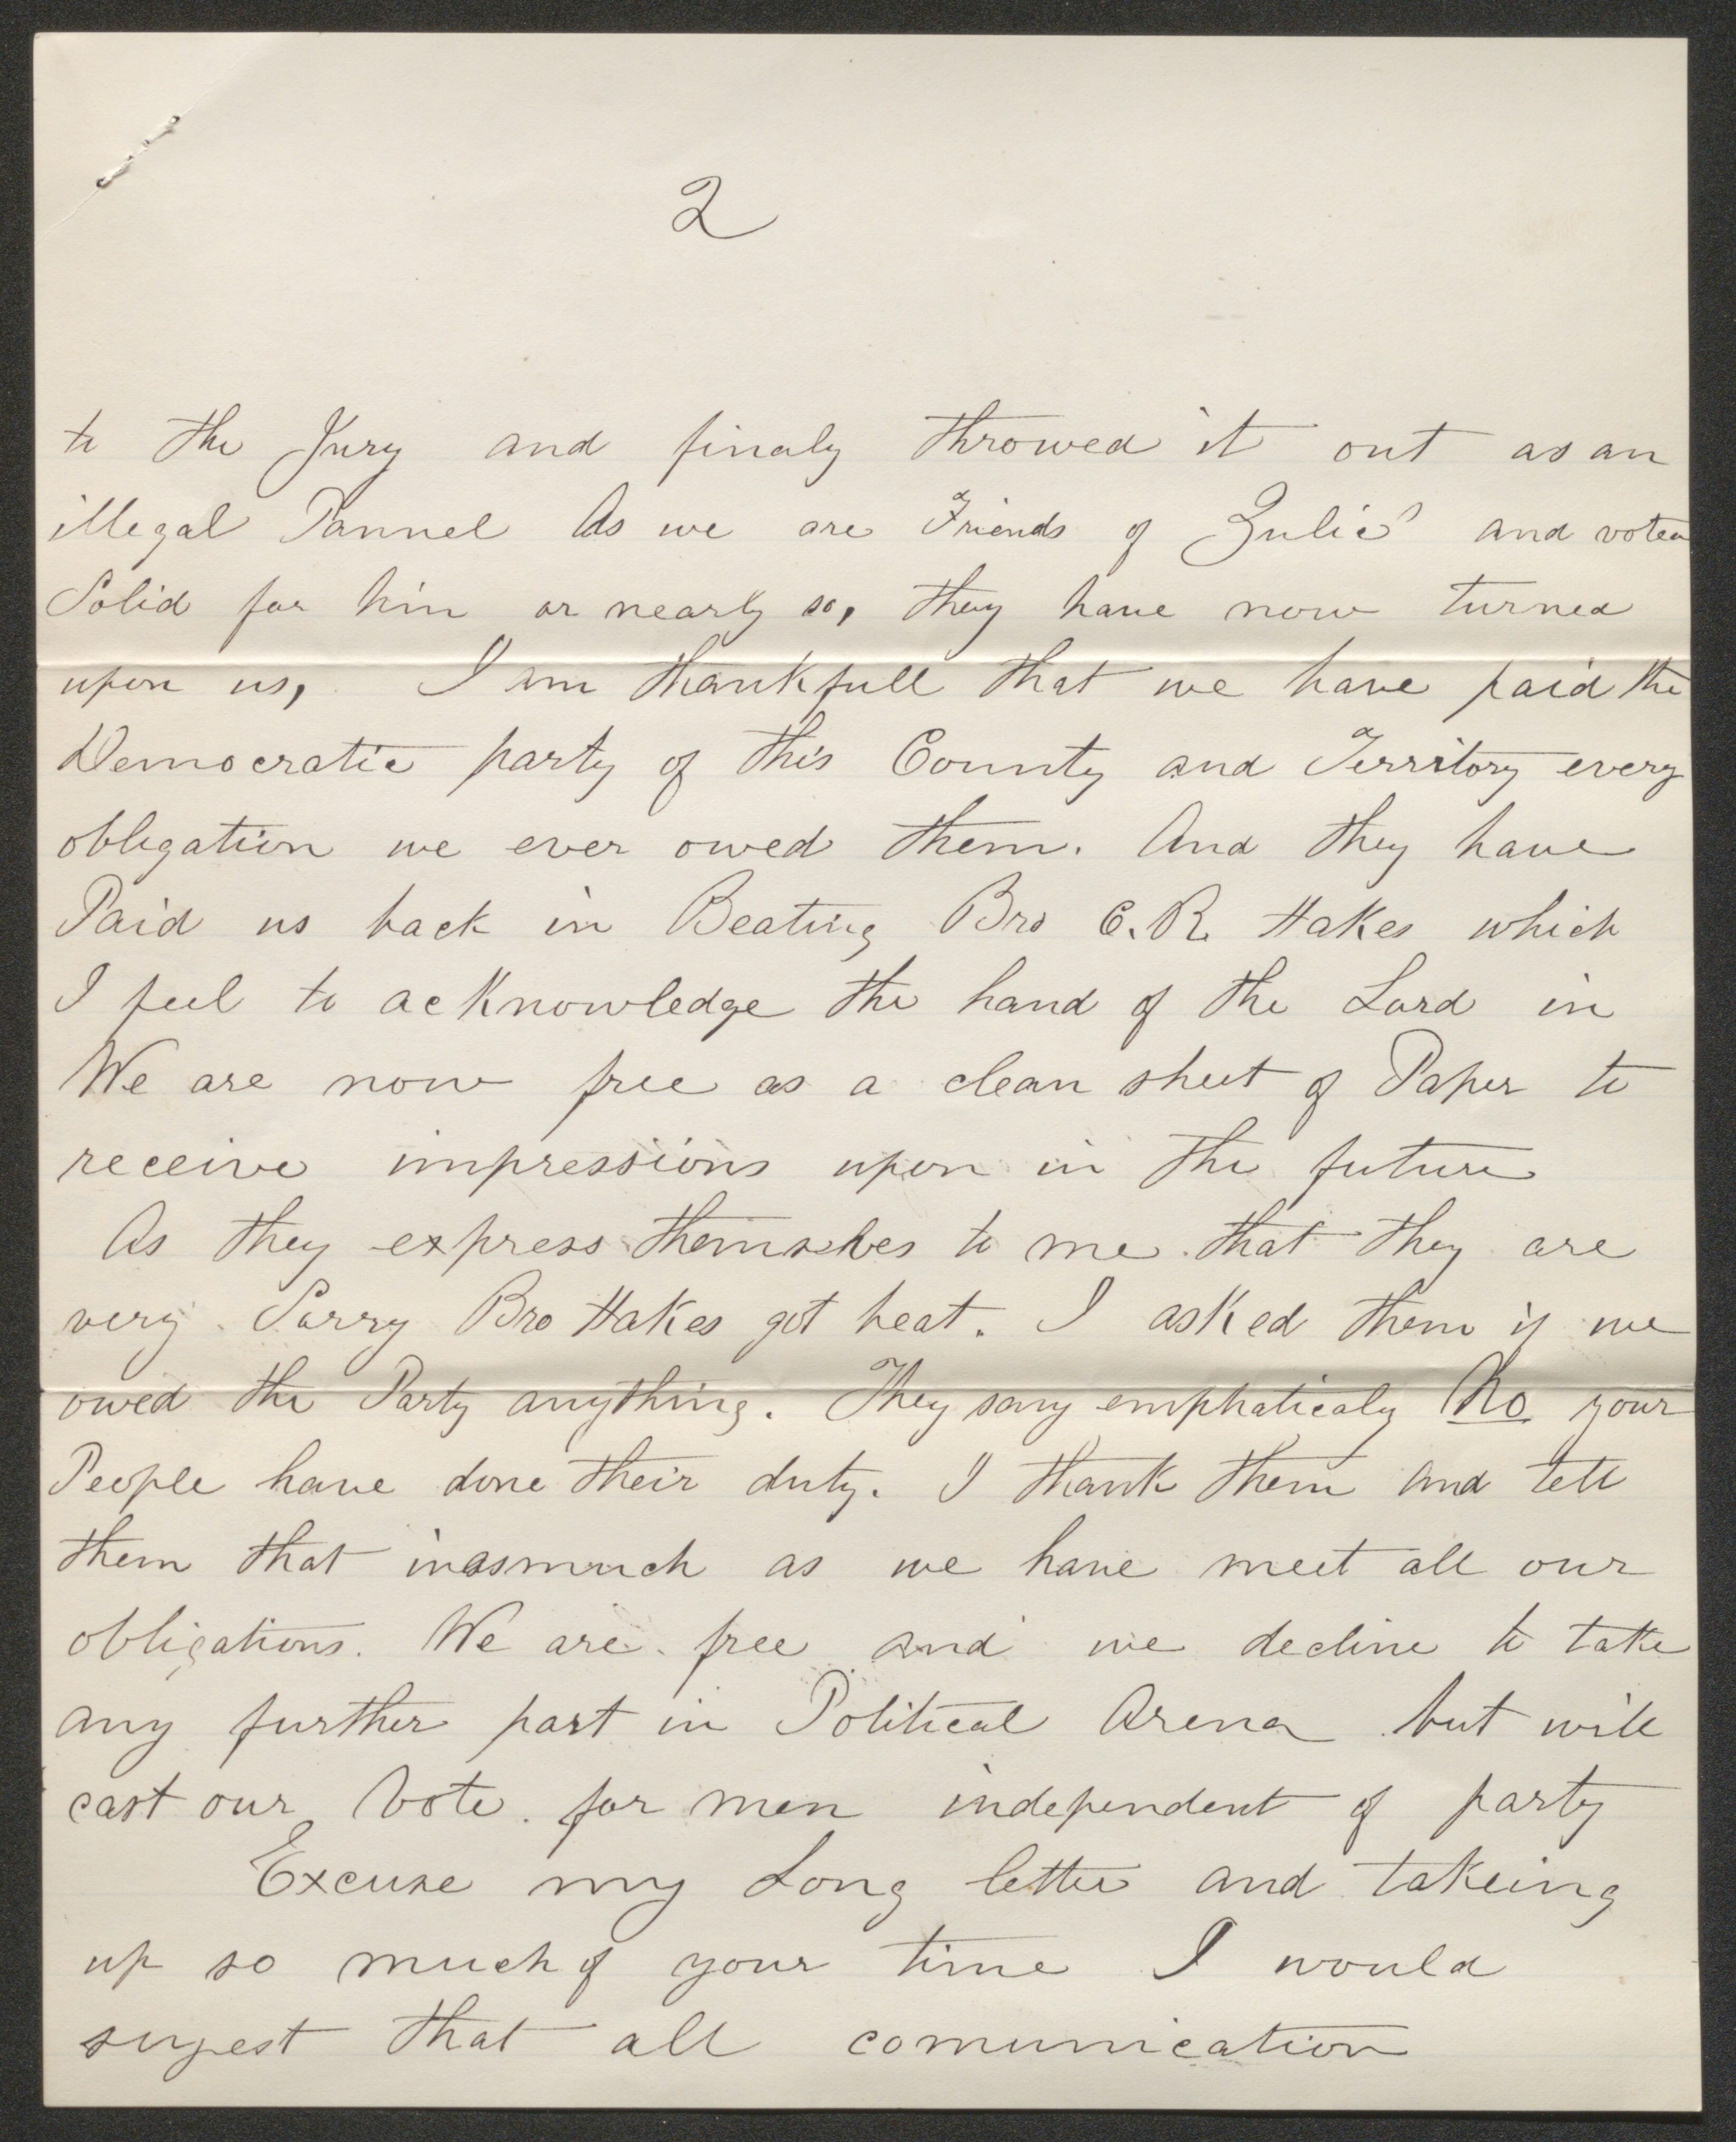 2
to the Jury and finaly throwed it out as an
illegal Pannel As we are Friends of Zulic and voted
Solid for him or nearly so, they have now turned
upon us, I am thankfull that we have paid the
Democratic party of this County and Territory every
obligation we ever owed them. And they have
Paid us back in Beating Bro C. R. Hakes which
I feel to acKnowledge the hand of the Lord in
We are now free as a clean sheet of Paper to
receive impressions upon in the future
As they express themselves to me that they are
very Sorry Bro Hakes got beat. I asked them if we
owed the Party anything. They say emphaticaly No your
People have done their duty. I thank them and tell
them that inasmuch as we have meet all our
obligations. We are free and we decline to take
any further part in Political Arena but will
cast our Vote for men independent of party
Excuse my Long letter and takeing
up so much of your time I would
sugest that all comunication